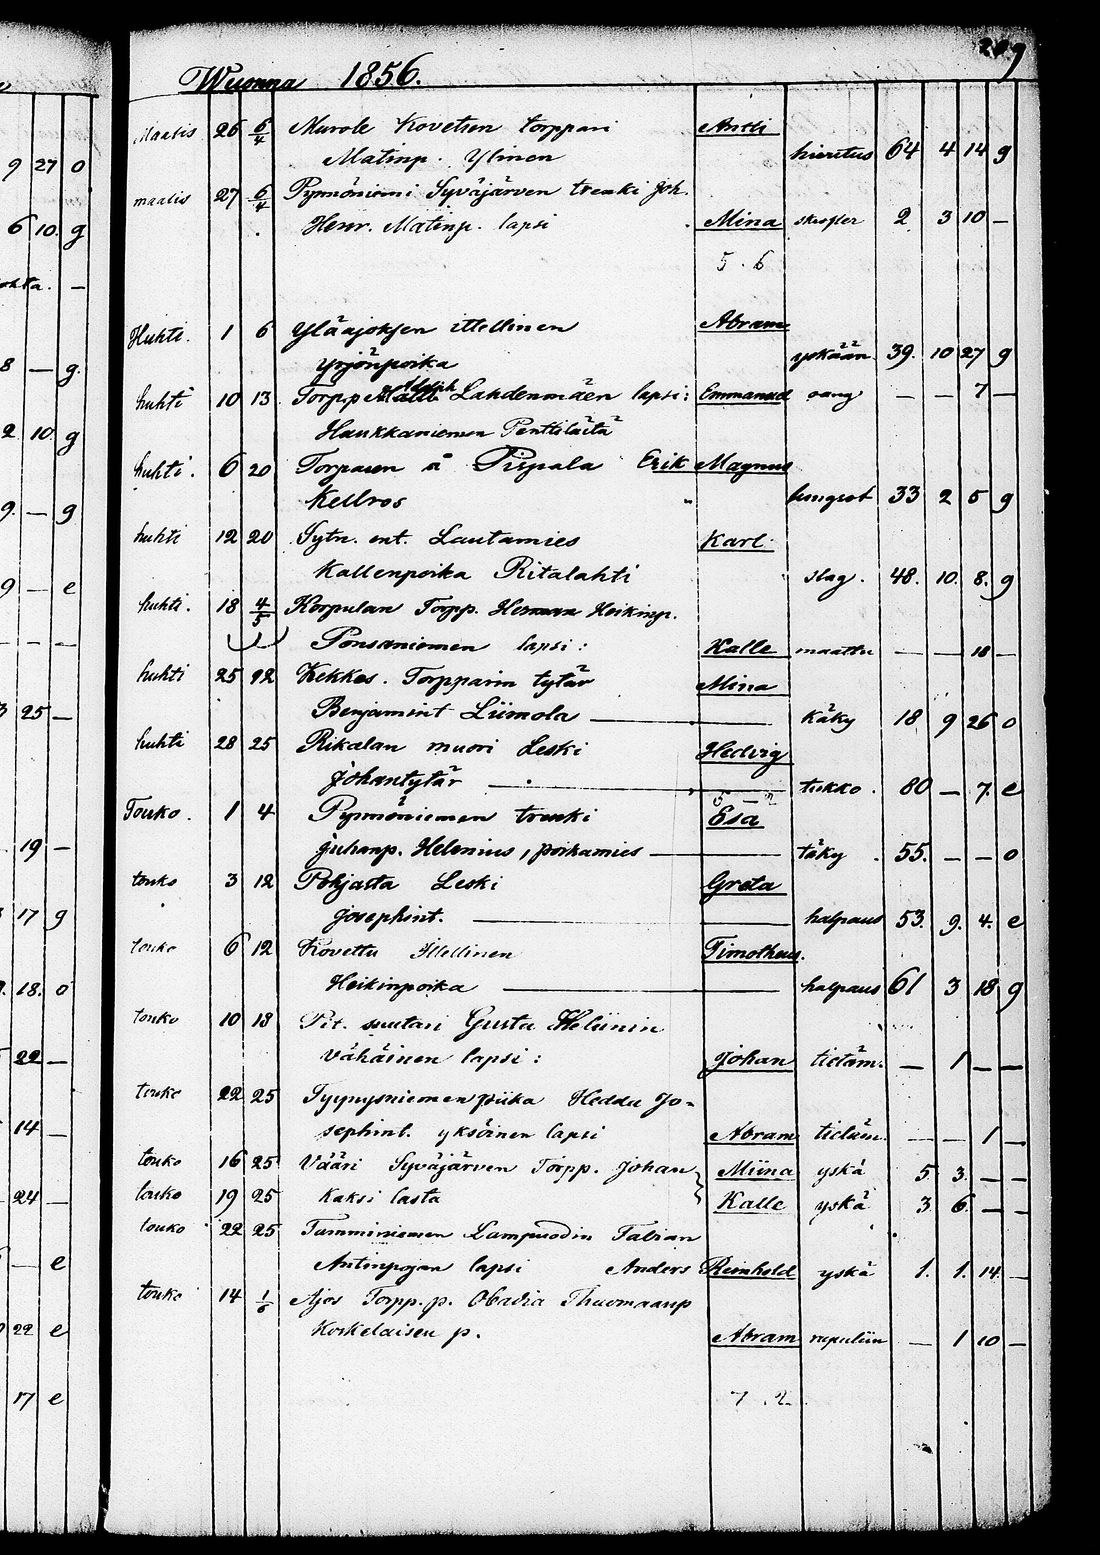 9
Wuonna 1856.
Maalis 26 6/4 Murole Kovetsen torppari Antti
Matinp. Ylinen hieritus 64 4 14 g
maalis 27 6/4 Pynnöniemi Syväjärven trenki Joh.
Henr. Matinp. lapsi Mina 2 3 10 —
5. 6
Huhti. 1 6 Yläajoksen ittellinen Abram
Yrjönpoika yskään 39. 10 27 g
huhti 10 13 Torpp Lahdenmäen lapsi: Emmanuel — — 7 —
Haukkaniemen Penttilästä
huhti. 6 20 Torparen å Pispala Erik Magnus
Kellros lungsot 33 2 5 g
huhti 12 20 Sytn. ent. Lautamies Karl
Kallenpoika Ritalahti slag. 48. 10. 8. g
huhti. 18 4/5 Korpulan Torpp. Herman Heikinp.
Ponsaniemen lapsi: Kalle maattu — — 18 —
huhti 25 12 Kekkos. Torpparin tytär Mina
Benjamint Liimola — käky 18 9 26 o
huhti 28 25 Rikalan muori Leski Hedvig
Johantytär — tukko. 80 — 7. e
5 — 2
Touko. 1 4 Pynnöniemen trenki Esa
Juhanp. Helenius, poikamies — täky. 55. — — o
touko 3 12 Pohjasta Leski Greta
Josephint. — halpaus 53. 9. 4. e
touko 6 12 Kovettu Ittellinen Timotheus.
Heikinpoika — halpaus 61 3 18 g
touko 10 18 Pit. suutari Gusta Heliinin
Vähäinen lapsi: Johan tietäm. — 1 — —
touko 22 25 Tyypysniemen piika Hedda Jo-
sephint. yksöinen lapsi Abram tietäm. — — 1 —
touko 16 25 Vääri Syväjärven Torpp. Johan Miina yskä 5 3. — —
touko 19 25 kaksi lasta Kalle yskä 3 6. — —
touko 22 25 Tamminiemen Lampuodin Fabian
Antinpojan lapsi Anders Reinhold yskä 1. 1. 14 —
touko 14 1/6 Ajos Torpp. p. Obadia Thuomaanp
Koskelaisen p. Abram rupuliin — 1 10 —
7. 2.